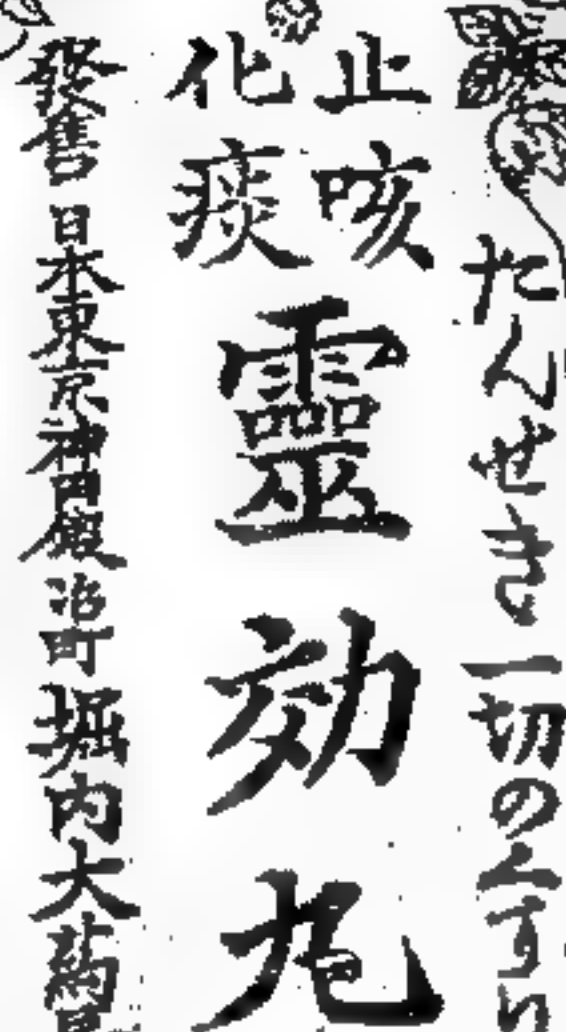 たんせき一切のくすり
止咳
化痰
靈効丸
發售 日本東京神田鍛冶町 堀内大藥